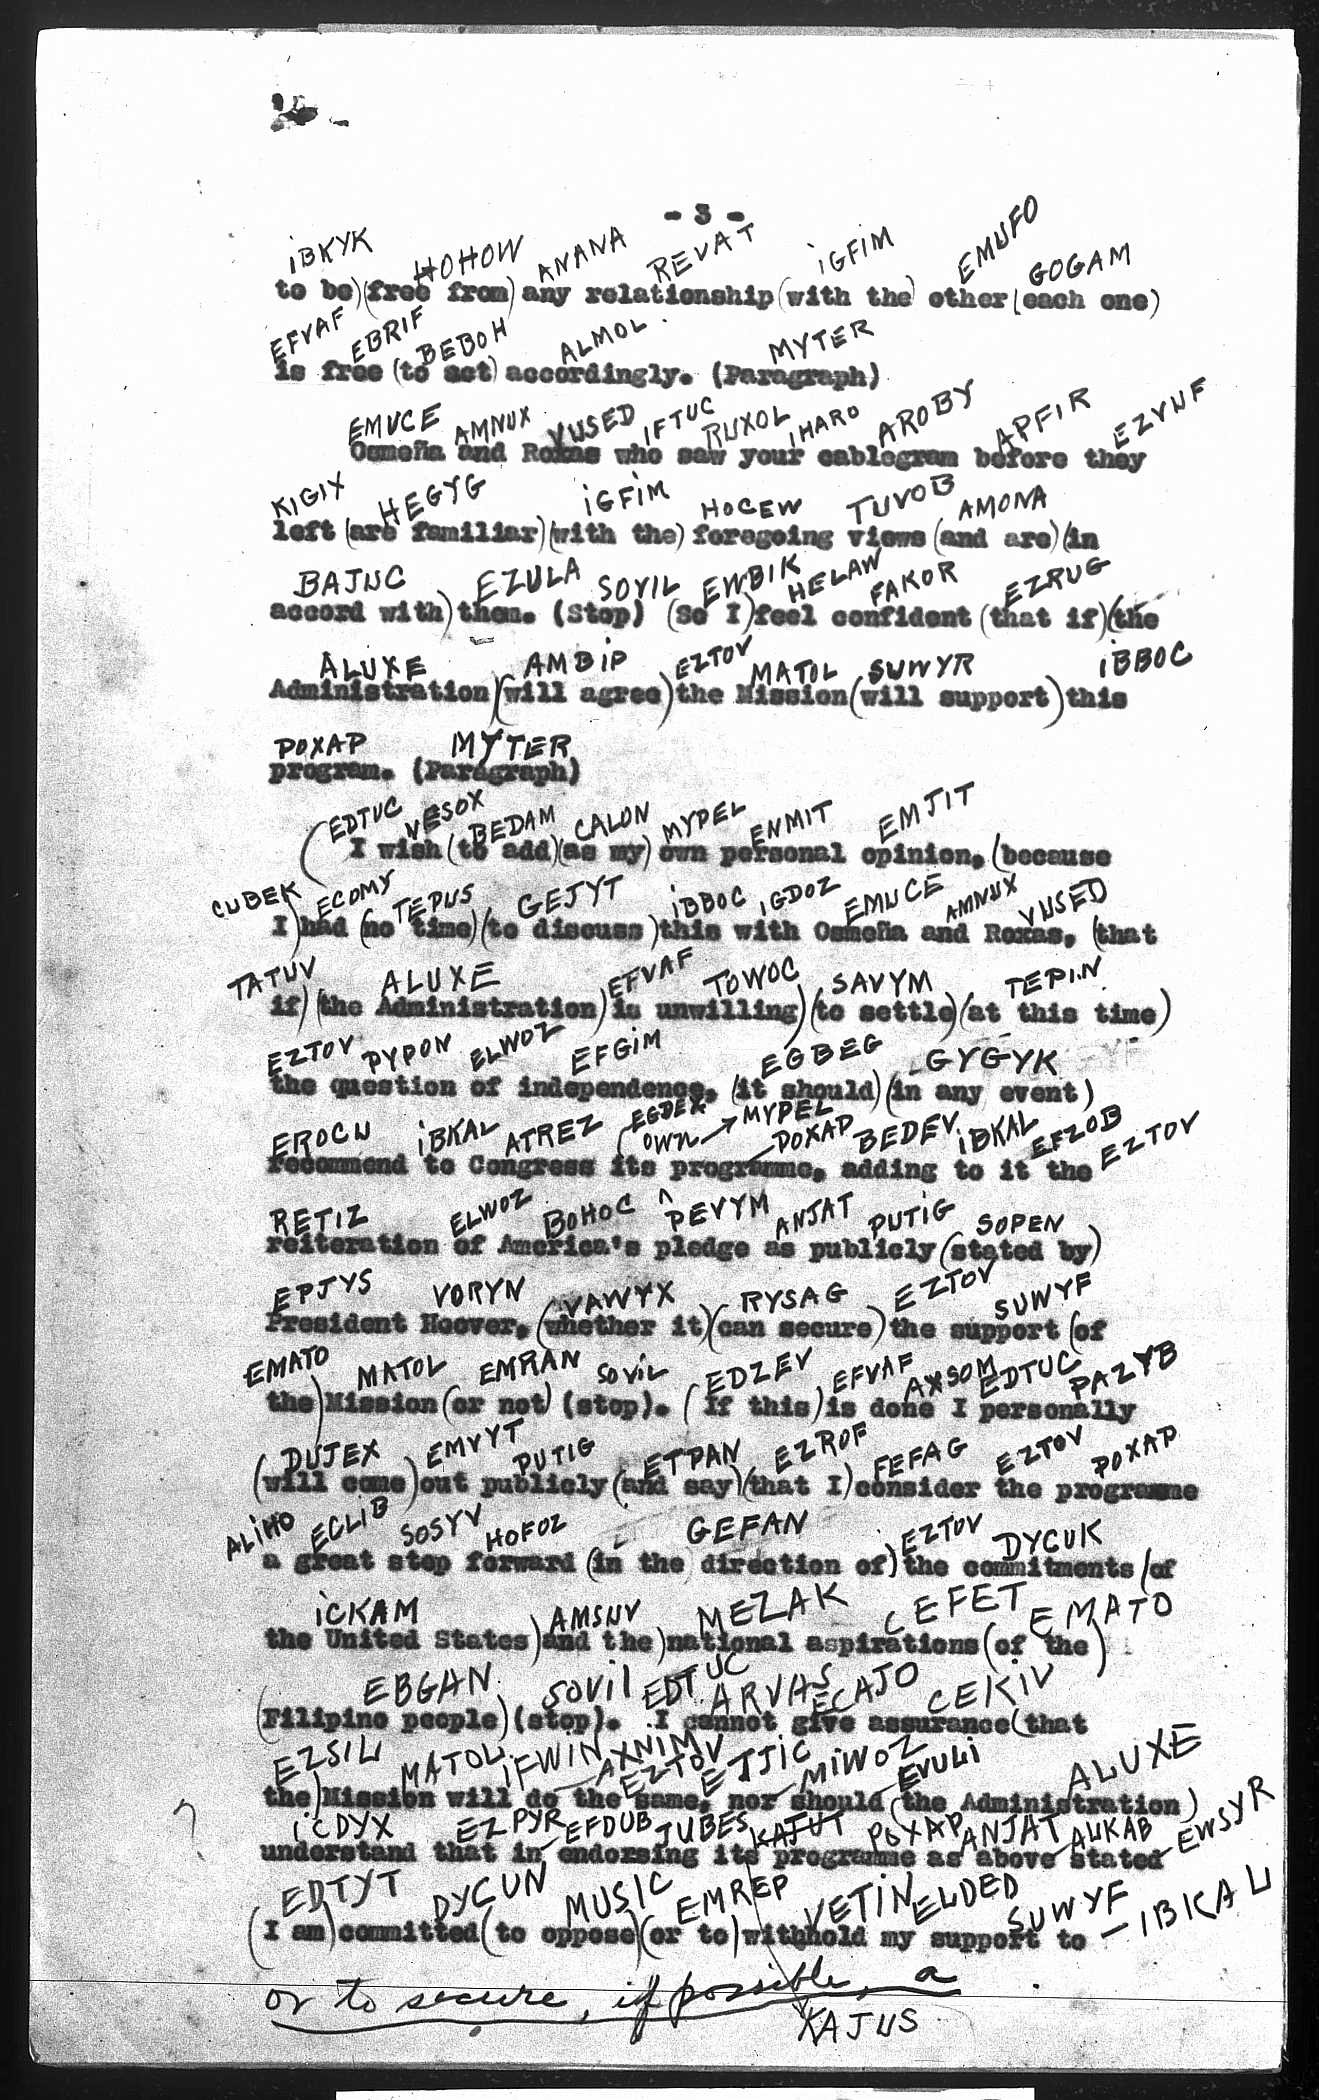 - 3 -
iBKYK HOHOW ANANA REVAT iGFiM EMUFO GOGAM
to be)(free from) any relationship (with the) other (each one)
EFVAF EBRIF BEBOH ALMOL MYTER
is free (to act) accordingly. (Paragraph)
EMUCE AMNUX VUSED IFTUC RUXOL IHARO AROBY APFIR EZYNF
Osmeña and Roxas who saw your cablegram before they
KIGIX HEGYG iGFiM HOCEW TUVOB AMONA
left (are familiar)(with the) foregoing views (and are)(in
BAJUC EZULA SOVIL EWBIK HELAW FAKOR EZRUG
accord with) them. (Stop) (So I) feel confident (that if)(the
ALUXE AMBiP EZTOV MATOL SUWYR iBBOC
Administration)(will agree) the Mission (will support) this
POXAP MYTER
program. (Paragraph)
EDTUC VESOX BEDAM CALON MYPEL ENMIT EMJIT
(I wish (to add)(as my) own personal opinion, (because
CUBEK ECOMY TEPUS GEJYT iBBOC IGDOZ EMUCE AMNUX VUSED
I) had (no time)(to discuss) this with Osmeña and Roxas, (that
TATUV ALUXE EFVAF TOWOC SAVYM TEPIN
if) (the Administration) is unwilling) (to settle) (at this time)
EZTOV PYPON ELWOZ EFGiM EGBEG GYGYK
the question of independence, (it should) (in any event)
EROCU iBKAL ATREZ (EGDEX OWN MYPEL POXAP BEDEV iBKAL EFZOB EZTOV
recommend to Congress its programme, adding to it the
RETIZ ELWOZ BOHOC PEVYM ANJAT PUTIG SOPEN
reiteration of America's pledge as publicly (stated by)
EPJYS VORYN VAWYX RYSAG EZTOV SUWYF
President Hoover, (whether it)(can secure) the support (of
EMATO MATOL EMRAN SOVIL EDZEV EFVAF AXSOM EDTUC PAZYB
the) Mission (or not) (stop). (If this) is done I personally
DUJEX EMVYT PUTIG ETPAN EZROF FEFAG EZTOV POXAP
(will come) out publicly (and say) (that I) consider the programme
ALIHO ECLIB SOSYV HOFOZ GEFAN EZTOV DYCUK
a great step forward (in the direction of) the commitments (of
iCKAM AMSUV MEZAK CEFET EMATO
the United States) and the) national aspirations (of the)
EBGAN SOVIL EDTUC ARVAS ECAJO CEKIV
(Filipino people) (stop). I cannot give assurance (that
EZSIL MATOL IFWIN AXNIM EZTOV ETJIC MIWOZ EVULI ALUXE
the) Mission will do the same, nor should (the Administration)
iCDYX EZPYR EFDUB JUBES KAJUT POXAP ANJAT AUKAB EWSYR
understand that in endorsing its programme as above stated
EDTYT DYCUN MUSIC EMREP VETIN ELDED SUWYF - IBKAL
(I am) committed (to oppose) (or to) withhold my support to
or to secure, if possible, a
KAJUS